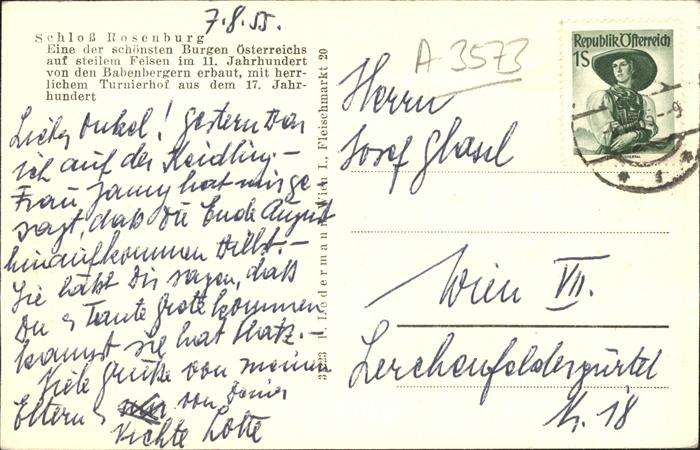 7.8.55.
Schloß Rosenburg
Eine der schönsten Burgen Österreichs
auf steilem Felsen im 11. Jahrhundert
von den Babenbergern erbaut, mit herr-
lichem Turnierhof aus dem 17. Jahr-
hundert
Lieber Onkel! Gestern war
ich auf der Meidling.-
Frau Janny hat mir ge
sagt, daß Du Ende August
hinaufkommen willst.-
Sie läßt Dir sagen, daß
Du & Tante Grete kommen
kannst sie hat Platz.-
Viele Grüße von meinen
Eltern & von Deiner
Nichte Lotte
P. Ledermann, Wien I., Fleischmarkt 20
A 3573
Republik Österreich
1S
Herrn
Josef Glasel
Wien VII.
Lerchenfeldergürtel
N. 18